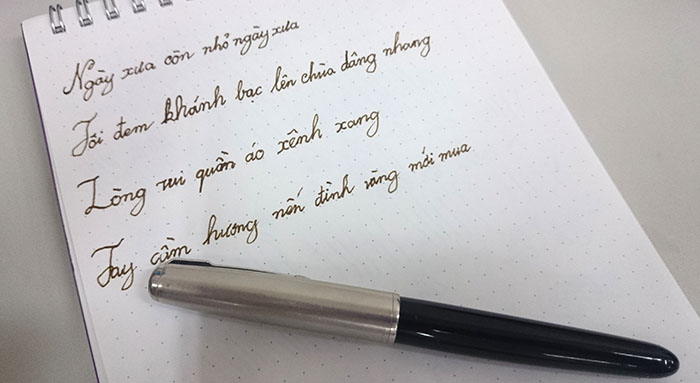 Ngày xưa còn nhỏ ngày xưa
Tôi đem khánh bạc lên chùa dâng nhang
Lòng vui quần áo xênh xang
Tay cầm hương nến đỉnh vàng mới mua